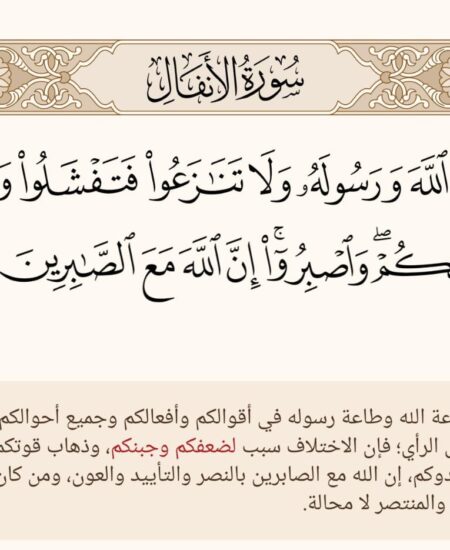 سُورَةُ الأَنفَالِ
ٱللَّهَ وَرَسُولَهُۥ وَلَا تَنَـٰزَعُوا۟ فَتَفْشَلُوا۟ وَ
كُمْ ۖ وَٱصْبِرُوٓا۟ ۚ إِنَّ ٱللَّهَ مَعَ ٱلصَّـٰبِرِينَ
عة الله وطاعة رسوله في أقوالكم وأفعالكم وجميع أحوالكم
الرأي؛ فإن الاختلاف سبب لضعفكم وجبنكم، وذهاب قوتكم
دوكم، إن الله مع الصابرين بالنصر والتأييد والعون، ومن كان
والمنتصر لا محالة.